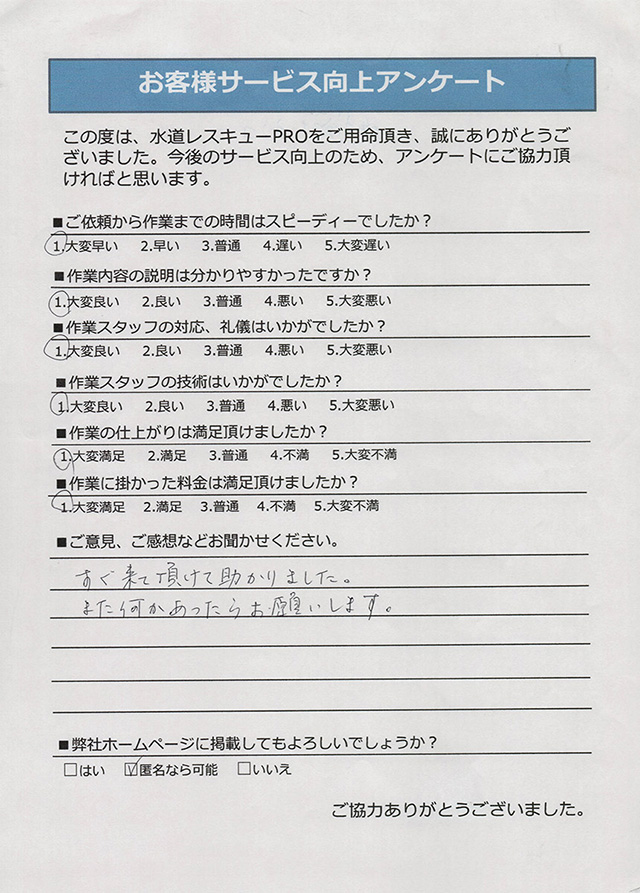 お客様サービス向上アンケート
この度は、水道レスキューPROをご用命頂き、誠にありがとうご
ざいました。今後のサービス向上のため、アンケートにご協力頂
ければと思います。
■ご依頼から作業までの時間はスピーディーでしたか？
1.大変早い 2.早い 3.普通 4.遅い 5.大変遅い
■作業内容の説明は分かりやすかったですか？
1.大変良い 2.良い 3.普通 4.悪い 5.大変悪い
■作業スタッフの対応、礼儀はいかがでしたか？
1.大変良い 2.良い 3.普通 4.悪い 5.大変悪い
■作業スタッフの技術はいかがでしたか？
1.大変良い 2.良い 3.普通 4.悪い 5.大変悪い
■作業の仕上がりは満足頂けましたか？
1.大変満足 2.満足 3.普通 4.不満 5.大変不満
■作業に掛かった料金は満足頂けましたか？
1.大変満足 2.満足 3.普通 4.不満 5.大変不満
■ご意見、ご感想などお聞かせください。
すぐ来て頂けて助かりました。
また何かあったらお願いします。
■弊社ホームページに掲載してもよろしいでしょうか？
□はい ☑匿名なら可能 □いいえ
ご協力ありがとうございました。